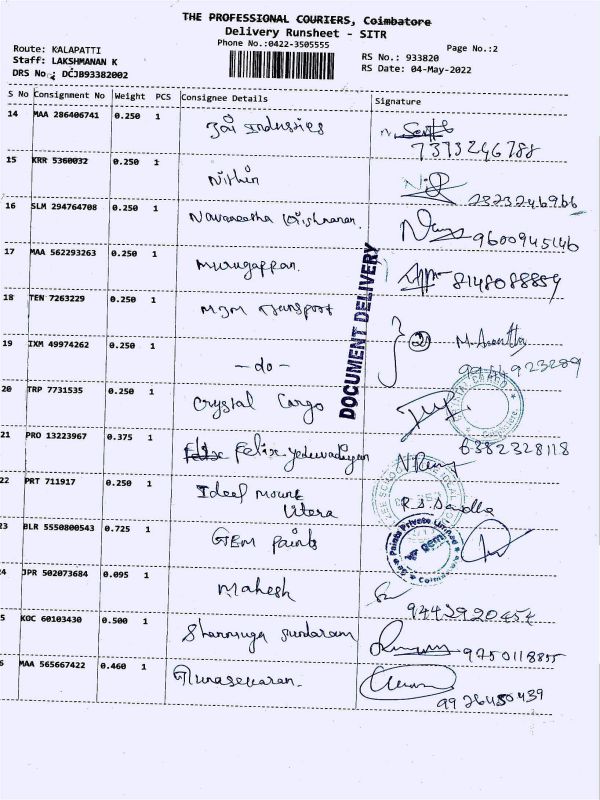 THE PROFESSIONAL COURIERS, Coimbatore
Delivery Runsheet - SITR
Phone No.:0422-3505555
Page No.:2
Route: KALAPATTI
Staff: LAKSHMANAN K
DRS No.: DCJB93382002
RS No.: 933820
RS Date: 04-May-2022
S No Consignment No Weight PCS Consignee Details Signature
14 MAA 286406741 0.250 1 Jai Industries
7373246788
15 KRR 5360032 0.250 1 Nithin
2323246966
16 SLM 294764708 0.250 1 Navaneetha Krishnanan.
9600945146
17 MAA 562293263 0.250 1 Murugappan.
8148088859
DOCUMENT DELIVERY
18 TEN 7263229 0.250 1 MJM Transport
2
19 IXM 49974262 0.250 1 -do-
9944923289
20 TRP 7731535 0.250 1 Crystal Cargo
21 PRO 13223967 0.375 1 Felix
6382328118
22 PRT 711917 0.250 1 Ideal mount
R.S. Sandha
23 BLR 5550800543 0.725 1 GEM paints
Paints Private Limited
gem
24 JPR 502073684 0.095 1 Mahesh
9442920454
5 KGC 60103430 0.500 1 Shanmuga Sundaram
9750118855
6 MAA 565667422 0.460 1 Gunasekaran.
9926450439